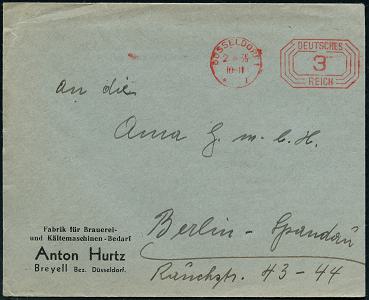 DÜSSELDORF 1
10-11
DEUTSCHES
3
REICH
An die
Ama G.m.b.H.
Berlin - Spandau
Räuchstr. 43-44
Fabrik für Brauerei-
und Kältemaschinen-Bedarf
Anton Hurtz
Breyell Bez. Düsseldorf.